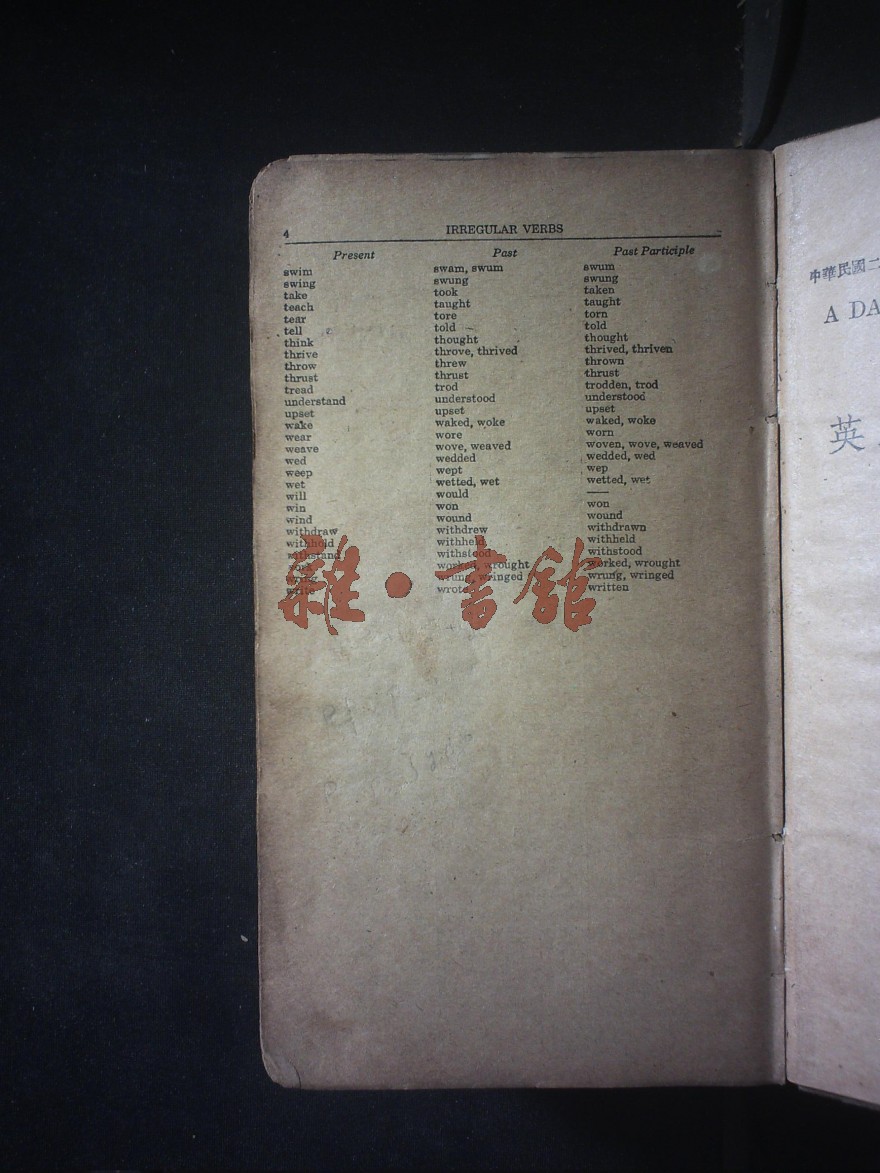 4 IRREGULAR VERBS
Present Past Past Participle
swim swam, swum swum
swing swung swung
take took taken
teach taught taught
tear tore torn
tell told told
think thought thought
thrive throve, thrived thrived, thriven
throw threw thrown
thrust thrust thrust
tread trod trodden, trod
understand understood understood
upset upset upset
wake waked, woke waked, woke
wear wore worn
weave wove, weaved woven, wove, weaved
wed wedded wedded, wed
weep wept wep
wet wetted, wet wetted, wet
will would —
win won won
wind wound wound
withdraw withdrew withdrawn
withhold withheld withheld
withstand withstood withstood
work worked, wrought worked, wrought
wring wrung, wringed wrung, wringed
write wrote written
雜·書館
中華民國二
A DA
英